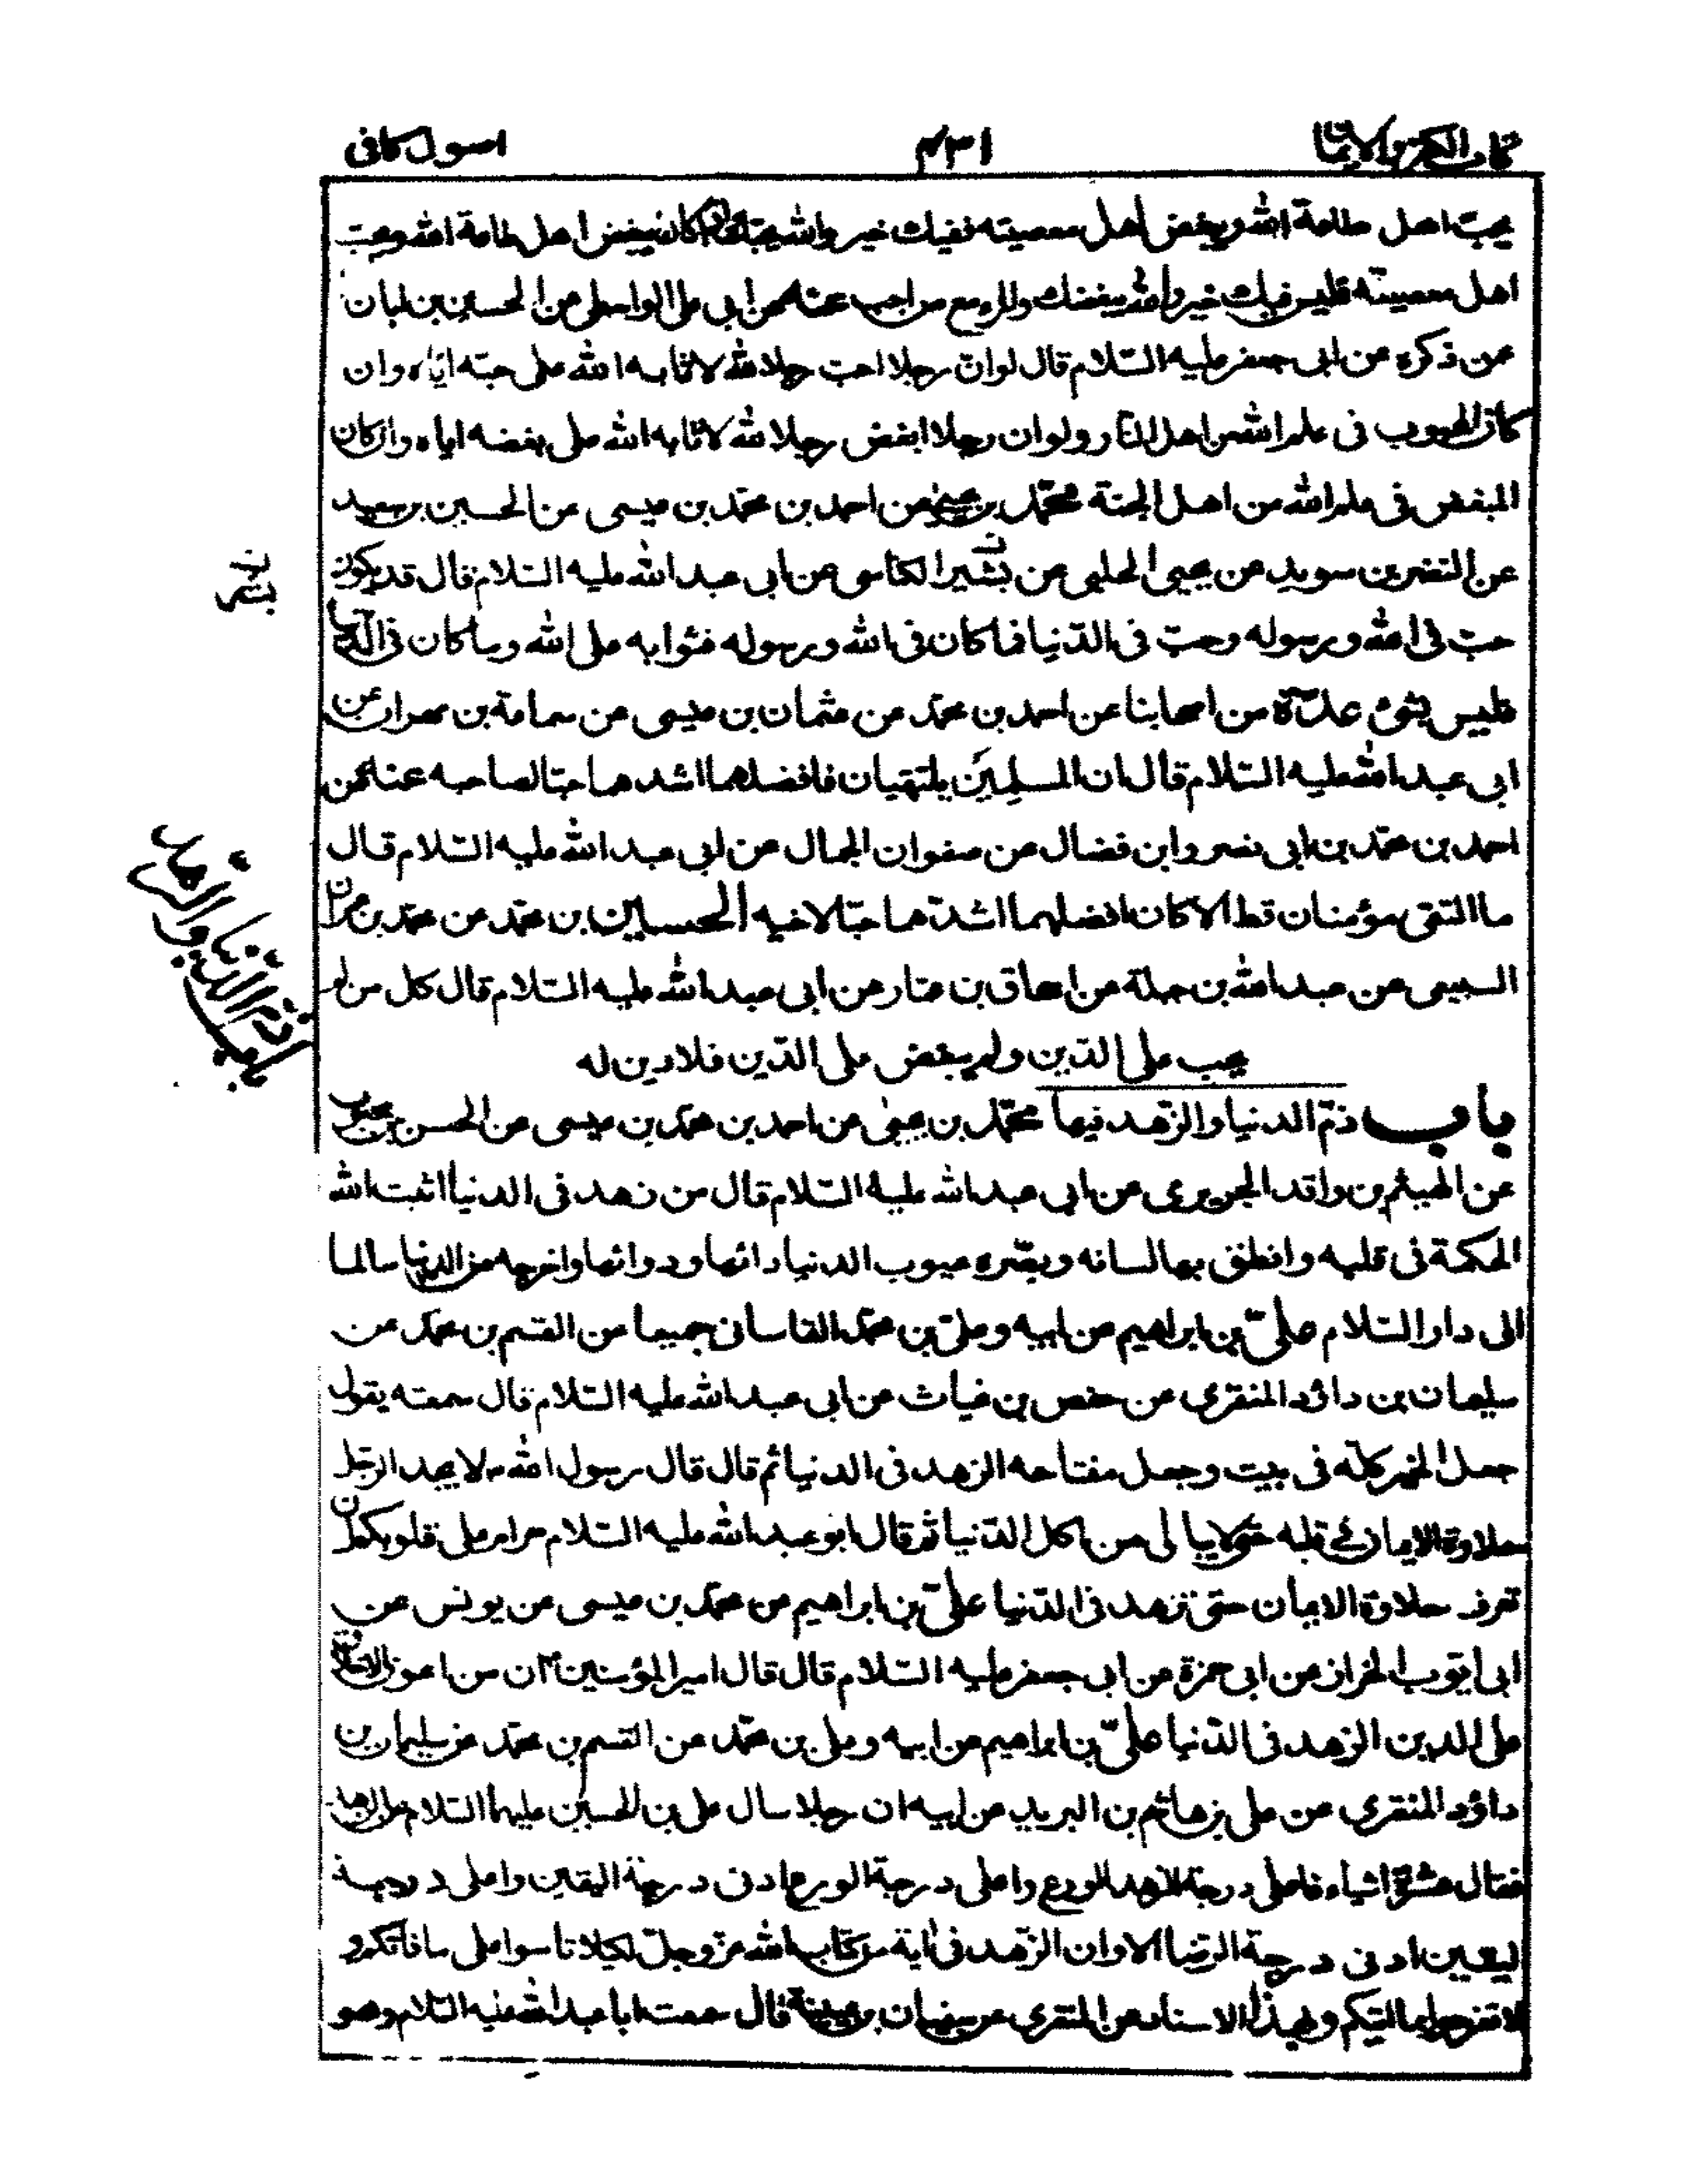 كتاب الكفر والايمان
٣١م
اصول كافى
يحبّ اهل طاعة الله ويبغض اهل معصيته ففيك خير والله يحبّك وان كان يبغض اهل طاعة الله ويحبّ
اهل معصيته فليس فيك خير والله يبغضك والمرء مع من احب عنه عن ابى على الواسطى عن الحسين بن ابان
عمن ذكره عن ابى جعفر عليه السّلام قال لو انّ رجلا احبّ رجلا لله لاثابه الله على حبّه ايّاه وان
كان المحبوب فى علم الله من اهل النّار ولو ان رجلا ابغض رجلا لله لاثابه الله على بغضه اياه وان كان
المبغض فى علم الله من اهل الجنة محمّد بن يحيى عن احمد بن محمّد بن عيسى عن الحسين بن سعيد
عن النّضر بن سويد عن يحيى الحلبى عن بشير الكناسى عن ابى عبد الله عليه السّلام قال قد يكون
حبّ فى الله ورسوله وحبّ فى الدّنيا فما كان فى الله ورسوله فثوابه على الله وما كان فى الدّنيا
فليس بشئ عدّة من اصحابنا عن احمد بن محمّد عن عثمان بن عيسى عن سماعة بن مهران عن
ابى عبد الله عليه السّلام قال ان المسلمَين يلتقيان فافضلهما اشدهما حبّا لصاحبه عنه عن
احمد بن محمّد بن ابى نصر وابن فضال عن صفوان الجمال عن ابى عبد الله عليه السّلام قال
ما التقى مؤمنان قط الا كان افضلهما اشدّهما حبّا لاخيه الحسين بن محمّد عن محمّد بن عمران
السبيعى عن عبد الله بن جبلة عن اسحاق بن عمّار عن ابى عبد الله عليه السّلام قال كل من لم
يحب على الدّين ولم يبغض على الدّين فلا دين له
باب ذمّ الدنيا والزّهد فيها محمّد بن يحيى عن احمد بن محمّد بن عيسى عن الحسن بن محبوب
عن الهيثم بن واقد الجريرى عن ابى عبد الله عليه السّلام قال من زهد فى الدنيا اثبت الله
الحكمة فى قلبه وانطق بها لسانه وبصّره عيوب الدنيا دائها ودوائها واخرجه من الدنيا سالما
الى دار السّلام علىّ بن ابراهيم عن ابيه وعلىّ بن محمّد القاسانى جميعا عن القسم بن محمّد عن
سليمان بن داؤد المنقرى عن حفص بن غياث عن ابى عبد الله عليه السّلام قال سمعته يقول
جعل الخير كلّه فى بيت وجعل مفتاحه الزهد فى الدنيا ثم قال قال رسول الله ص لا يجد الرّجل
حلاوة الايمان فى قلبه حتى لا يبالى من اكل الدّنيا ثم قال ابو عبد الله عليه السّلام حرام على قلوبكم ان
تعرف حلاوة الايمان حتى تزهد فى الدّنيا علىّ بن ابراهيم عن محمّد بن عيسى عن يونس عن
ابى ايّوب الخراز عن ابى حمزة عن ابى جعفر عليه السّلام قال قال امير المؤمنين ٤ ان من اعون الاخلاق
على الدين الزهد فى الدّنيا علىّ بن ابراهيم عن ابيه وعلى بن محمّد عن القسم بن محمّد عن سليمان بن
داؤد المنقرى عن على بن هاشم بن البريد عن ابيه ان رجلا سال على بن الحسين عليهما السّلام عن الزهد
فقال عشرة اشياء فاعلى درجة الزهد الورع واعلى درجة الورع ادنى درجة اليقين واعلى درجة
ليقين ادنى درجة الرّضا الا وان الزّهد فى اية من كتاب الله عزّ وجلّ لكيلا تاسوا على ما فاتكم و
لا تفرحوا بما اتيكم وبهذا الاسناد عن المنقرى عن سفيان بن عيينة قال سمعت ابا عبد الله عليه السّلام وهو
ن
بشر
باب ذم الدنيا والزهد